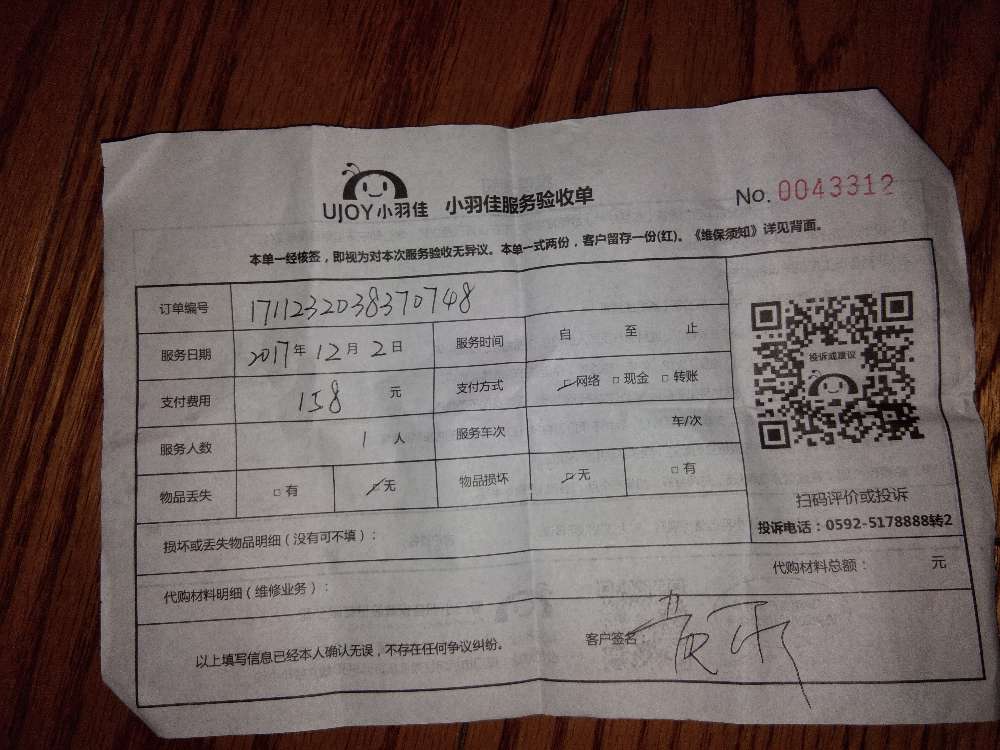 UJOY小羽佳 小羽佳服务验收单 No. 0043312
本单一经核签，即视为对本次服务验收无异议。本单一式两份，客户留存一份(红)。《维保须知》详见背面。
订单编号 1711232038370748
服务日期 2017年12月2日 服务时间 自 至 止
支付费用 158 元 支付方式 □网络 □现金 □转账
服务人数 1人 服务车次 车/次
物品丢失 □有 □无 物品损坏 □无 □有
投诉或建议
扫码评价或投诉
投诉电话：0592-5178888转2
损坏或丢失物品明细（没有可不填）：
代购材料明细（维修业务）： 代购材料总额： 元
以上填写信息已经本人确认无误，不存在任何争议纠纷。 客户签名：